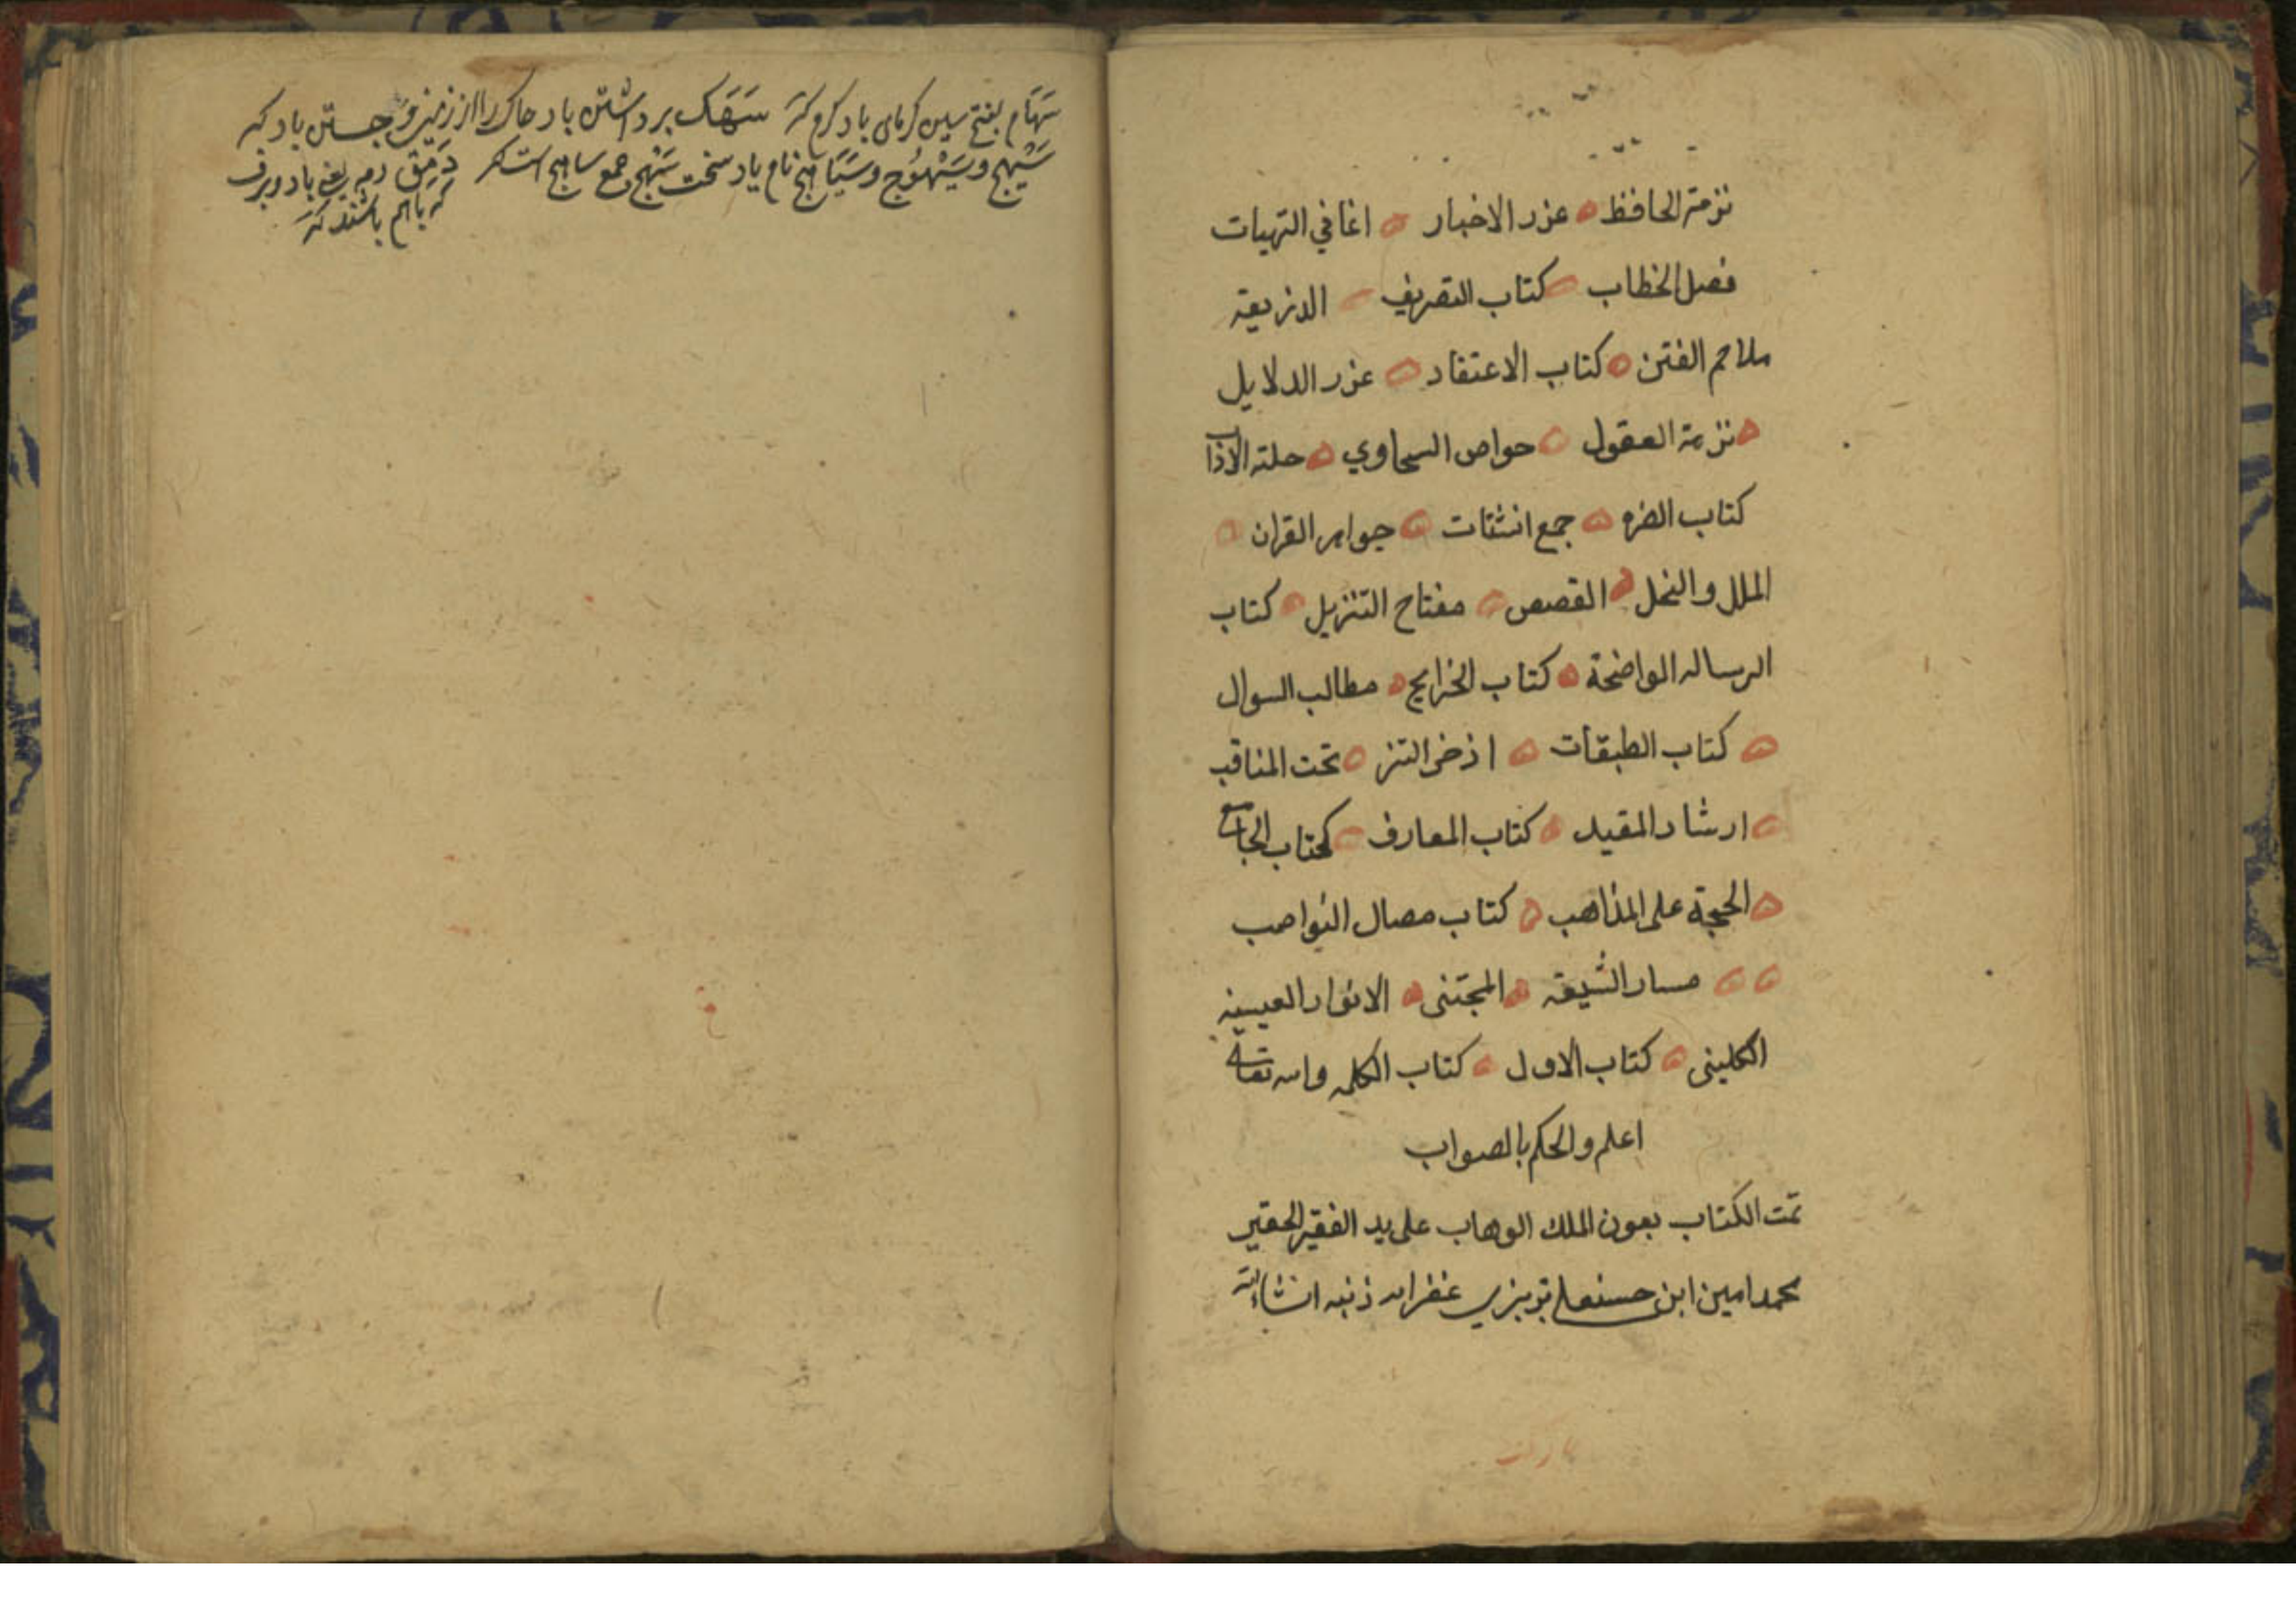 نزهة الحافظ عزر الاخبار اغاني التهيات
فصل الخطاب كتاب التصريف الذزيعة
ملاحم الفتن كتاب الاعتقاد عزر الدلايل
نزهة العقول حواص السحاوي حلته الاذاب
كتاب الضره جمع انشتات جواهر القران
الملل والنحل القصص مفتاح التنزيل كتاب
الرساله الواضحة كتاب الخرايج مطالب السوال
كتاب الطبقات اذخر التنز تحت المناقب
ارشاد المقيد كتاب المعارف كتاب الجامع
الحجة على المذاهب كتاب مصال النواصب
مسار الشيعه المجتنى الانوار العيينه
الكلينى كتاب الاول كتاب الكلمه والله تعالى
اعلم والحكم بالصواب
تمت الكتاب بعون الملك الوهاب على يد الفقير الحقير
محمد امين ابن حسنعلي تبريزي غفر الله ذنبه انشاءالله
سَهَام بفتح سين كرماى باد كرم كنز سَهَک برداشتن باد خاک را از زمين و جستن باد كنز
سَيْهَج وسَيْهُوج وسَيَاهج نام باد سخت سَهج جمع ساهج است كنز دَمَق دمه يعنى باد وبرف
كه باهم باشند كنز